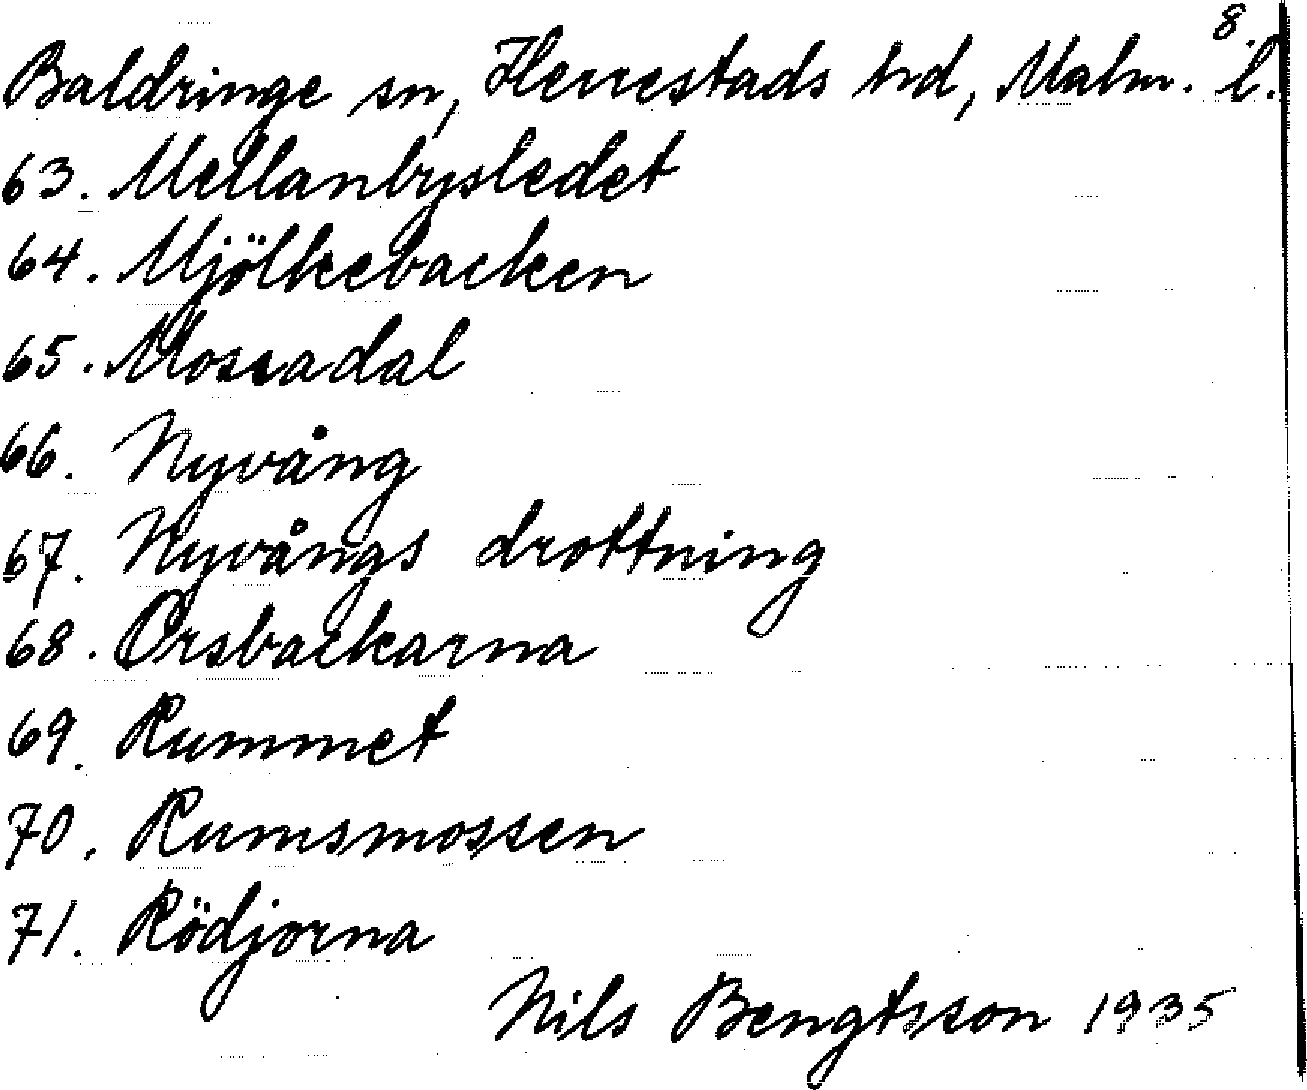 8.
Baldringe sn, Herrestads hd, Malm. l.
63. Mellanbysledet
64. Mjölkebacken
65. Mossadal
66. Nyvång
67. Nyvångs drottning
68. Orsbackarna
69. Rummet
70. Rumsmossen
71. Rödjorna
Nils Bengtsson 1935